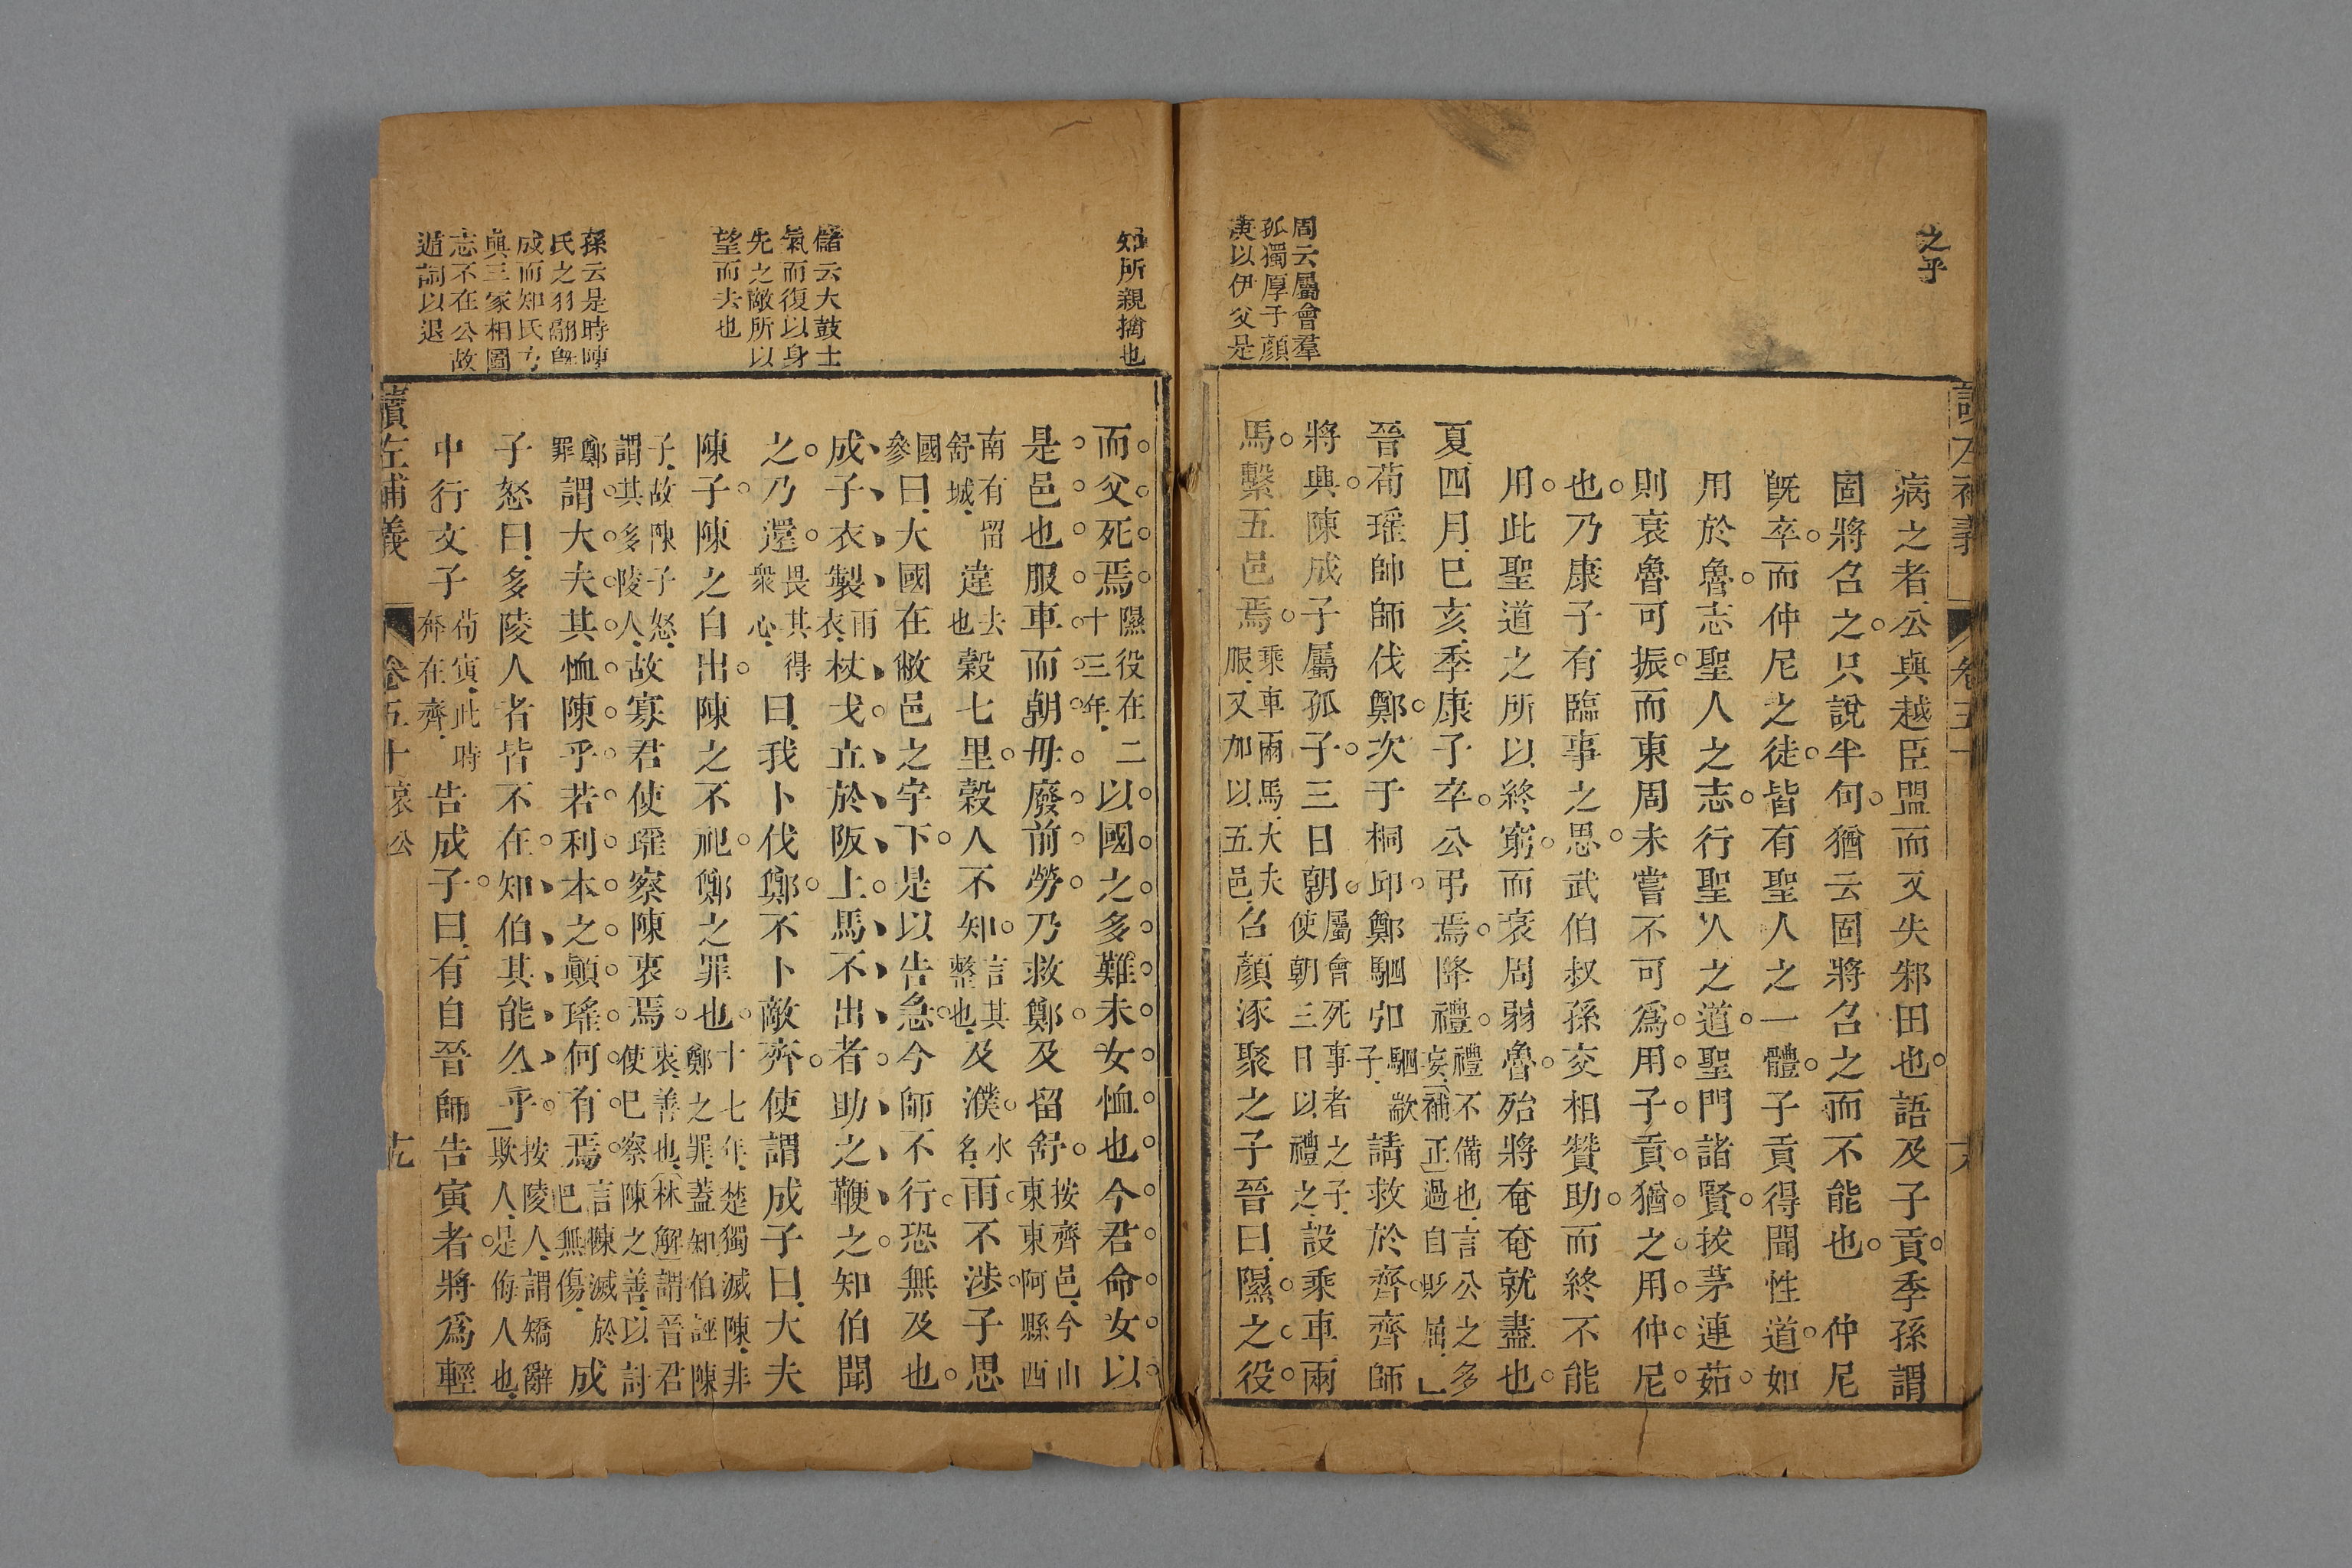 之乎
周云屬會羣
孤獨厚子顔
庚以伊父是
病之者公與越臣盟而又失邾田也語及子貢季孫謂
固將召之只說半句猶云固將召之而不能也 仲尼
旣卒而仲尼之徒皆有聖人之一體子貢得聞性道如
用於魯志聖人之志行聖人之道聖門諸賢拔茅連茹
則衰魯可振而東周未嘗不可爲用子貢猶之用仲尼
也乃康子有臨事之思武伯叔孫交相贊助而終不能
用此聖道之所以終窮而衰周弱魯殆將奄奄就盡也
夏四月己亥季康子卒公弔焉降禮禮不備也言公之多妄補正過自貶屈
晉荀瑤帥師伐鄭次于桐邱鄭駟弘駟歂子請救於齊齊師
將興陳成子屬孤子三日朝屬會死事者之子使朝三日以禮之設乘車兩
馬繫五邑焉乘車兩馬大夫服又加以五邑召顔涿聚之子晉曰隰之役
知所親擒也
儲云大鼓士
氣而復以身
先之敵所以
望而去也
孫云是時陳
氏之羽翮旣
成而知氏方
與三家相圖
志不在公故
遁詞以退
而父死焉隰役在二十三年以國之多難未女恤也今君命女以
是邑也服車而朝毋廢前勞乃救鄭及留舒按齊邑今山東東阿縣西
南有留舒城違去也穀七里穀人不知言其整也及濮水名雨不涉子思
國參曰大國在敝邑之宇下是以告急今師不行恐無及也
成子衣製雨衣杖戈立於阪上馬不出者助之鞭之知伯聞
之乃還畏其得衆心曰我卜伐鄭不卜敵齊使謂成子曰大夫
陳子陳之自出陳之不祀鄭之罪也十七年楚獨滅陳非鄭之罪蓋知伯誣陳
子故陳子怒謂其多陵人故寡君使瑤察陳衷焉衷善也林解謂晉君使已察陳之善以討
鄭罪謂大夫其恤陳乎若利本之顚瑤何有焉言陳滅於已無傷成
子怒曰多陵人者皆不在知伯其能久乎按陵人謂矯辭欺人是侮人也
中行文子荀寅此時奔在齊告成子曰有自晉師告寅者將爲輕
讀左補義 卷五十 哀公